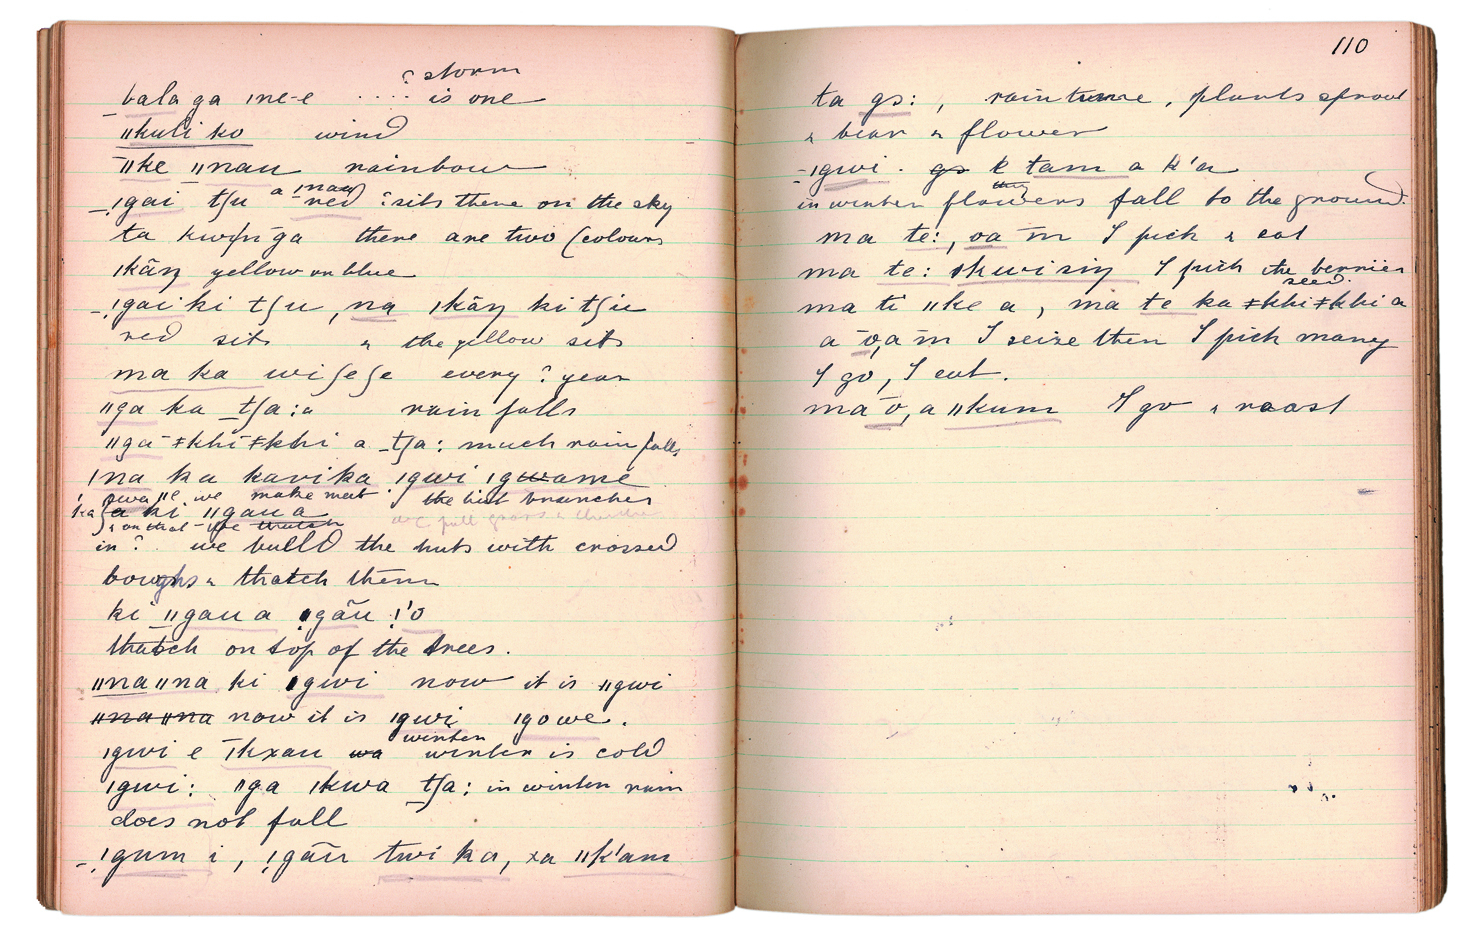 ? storm
bala ga ǀne-e .... is one
ǁkuli ko wind
ǁke ǁnau rainbow
a ǀnau
ǃgai tʃu red ? sits there on the sky
ta kwɲ ga there are two (colours
ǀkãŋ yellow or blue
ǃgai ki tʃu, na ǀkãŋ ki tʃu
red sits & the yellow sits
ma ka wi ʃeʃe every ? year
ǁga ka tʃa:a rain falls
ǁga ǂkhiǂkhi a tʃa: much rain falls
ǀna ka kavika ǀgwi ǀgwame
we make mat the best branches
ka a ki ǁgaua
& on that - we thatch
in ? we build the huts with crossed
boughs & thatch them
ki ǁgaua ǃgãu ǃ'o
thatch on top of the trees.
ǁnaǁna ki ǀgwi now it is ǁgwi
ǁnaǁna now it is ǀgwi ǀgowe.
winter
ǀgwi e ǀkxau wa winter is cold
ǀgwi: ǁga ǀkwa tʃa: in winter rain
does not fall
ǃgum i, ǃgãũ twi ka, xa ǁk'am
110
ta gɔ:, raintime, plants sprout
& bear & flower
ǀgwi. gɔ k tam a k'a
they
in winter flowers fall to the ground.
ma te:, oa m̄ I pick & eat
ma te: ǀkwisiŋ I pick the berries
seed.
ma ti ǁke a, ma te ka ǂkhiǂkhi a
a ō, a m̄ I seize then I pick many
I go, I eat.
ma ō, a ǁkum I go & roast